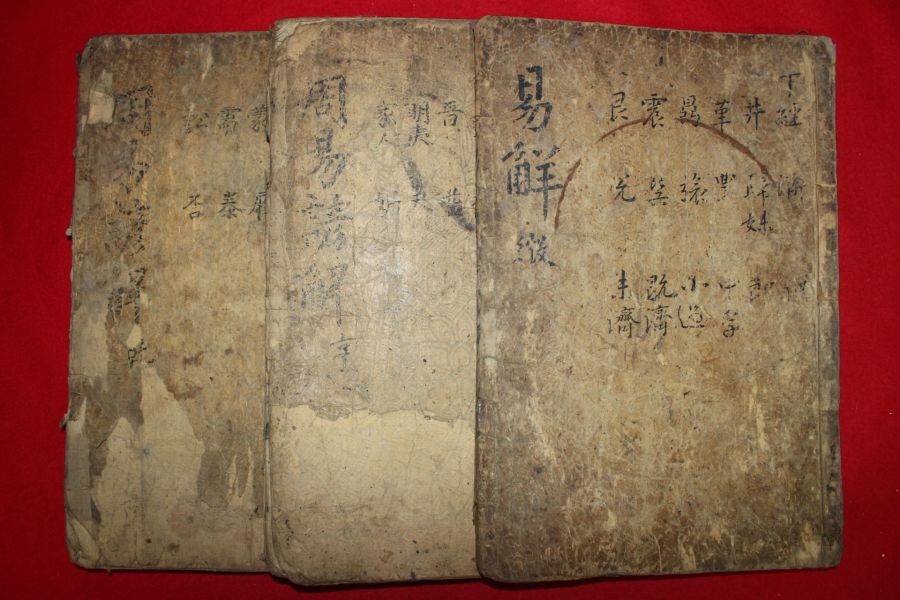 下經
井 歸妹 節
革 豐 中孚
鼎 旅 小過
震 巽 旣濟
艮 兌 未濟
易觧
晋 益
明夷 夬
家人 姤
周易諺解 亨
蒙 履
需 泰
訟 否
周易諺解